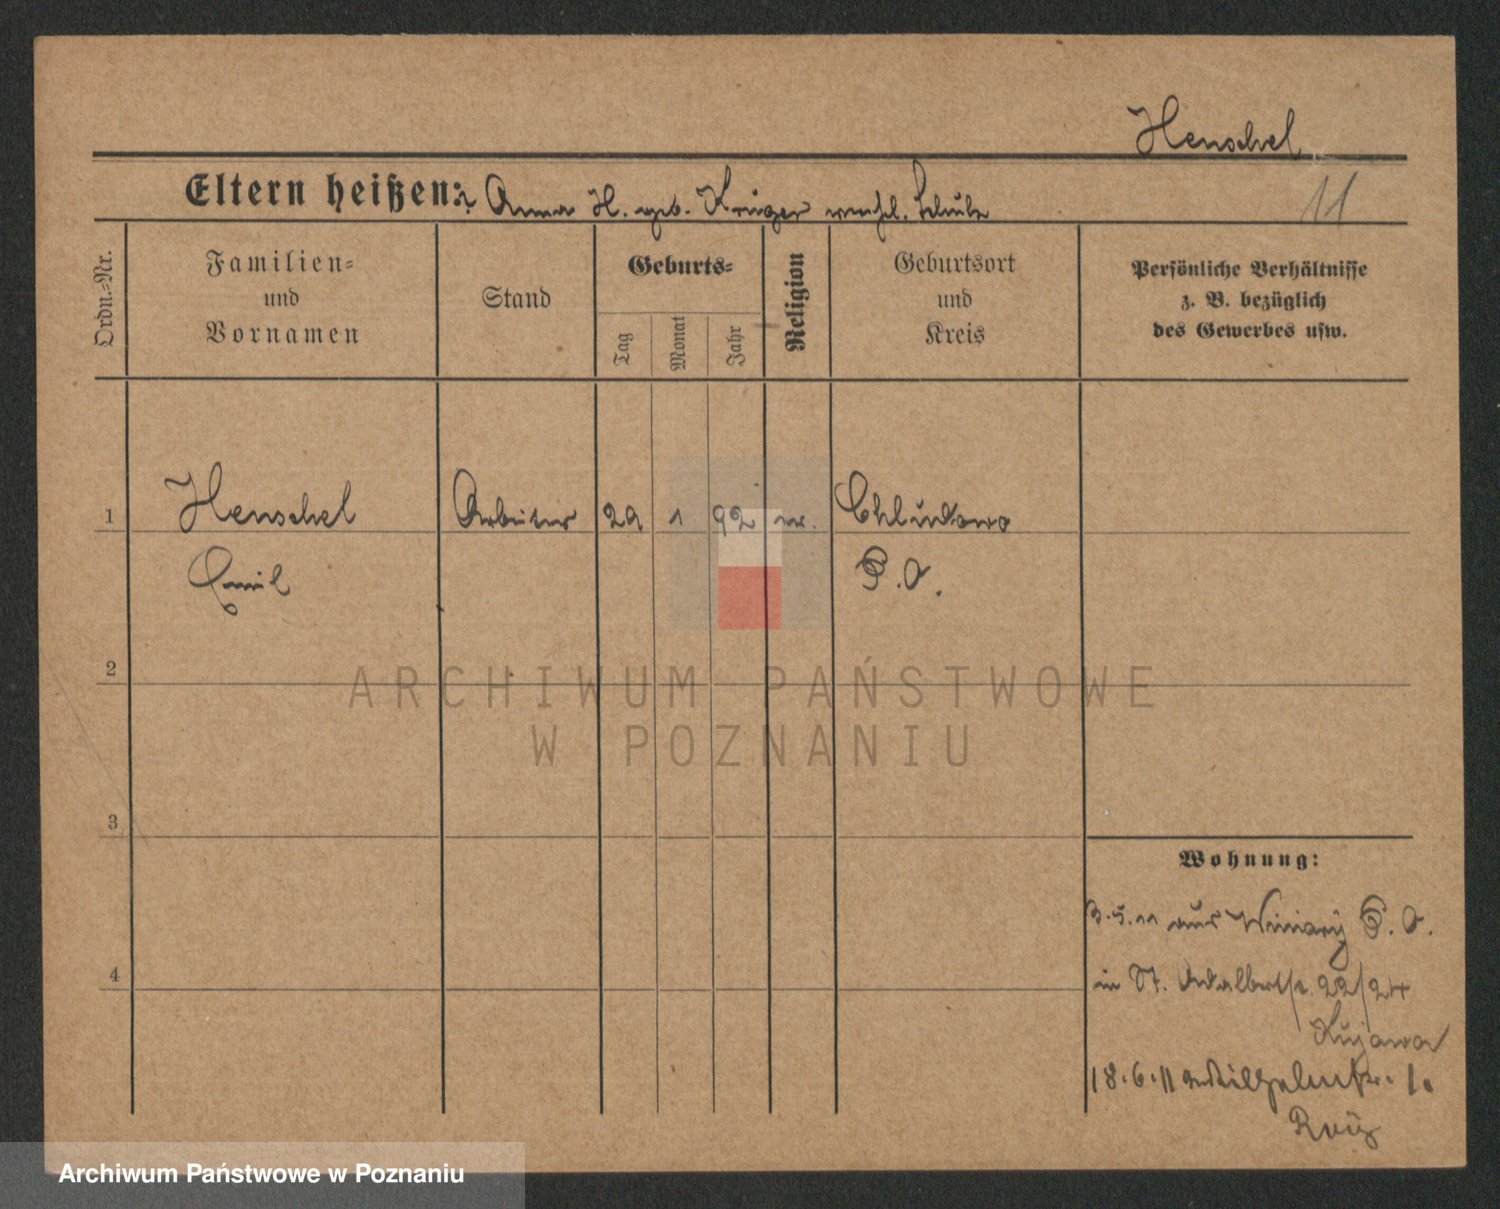 Henschel
11
Eltern heißen: Anna H. geb. Krüger verehel. Schulz
Ordn.-Nr.
Familien-
und
Vornamen
Stand
Geburts-
Tag
Monat
Jahr
Religion
Geburtsort
und
Kreis
Persönliche Verhältnisse
z. B. bezüglich
des Gewerbes usw.
1
Henschel
Emil
Arbeiter
29
1
92
ev.
Chludowo
P. O.
2
3
4
ARCHIWUM PAŃSTWOWE
W POZNANIU
Wohnung:
3.5.11 aus Winiary P. O.
in St. Adalbertstr. 22/24
Kujawa
18.6.11 Wilhelmstr. 10
Archiwum Państwowe w Poznaniu